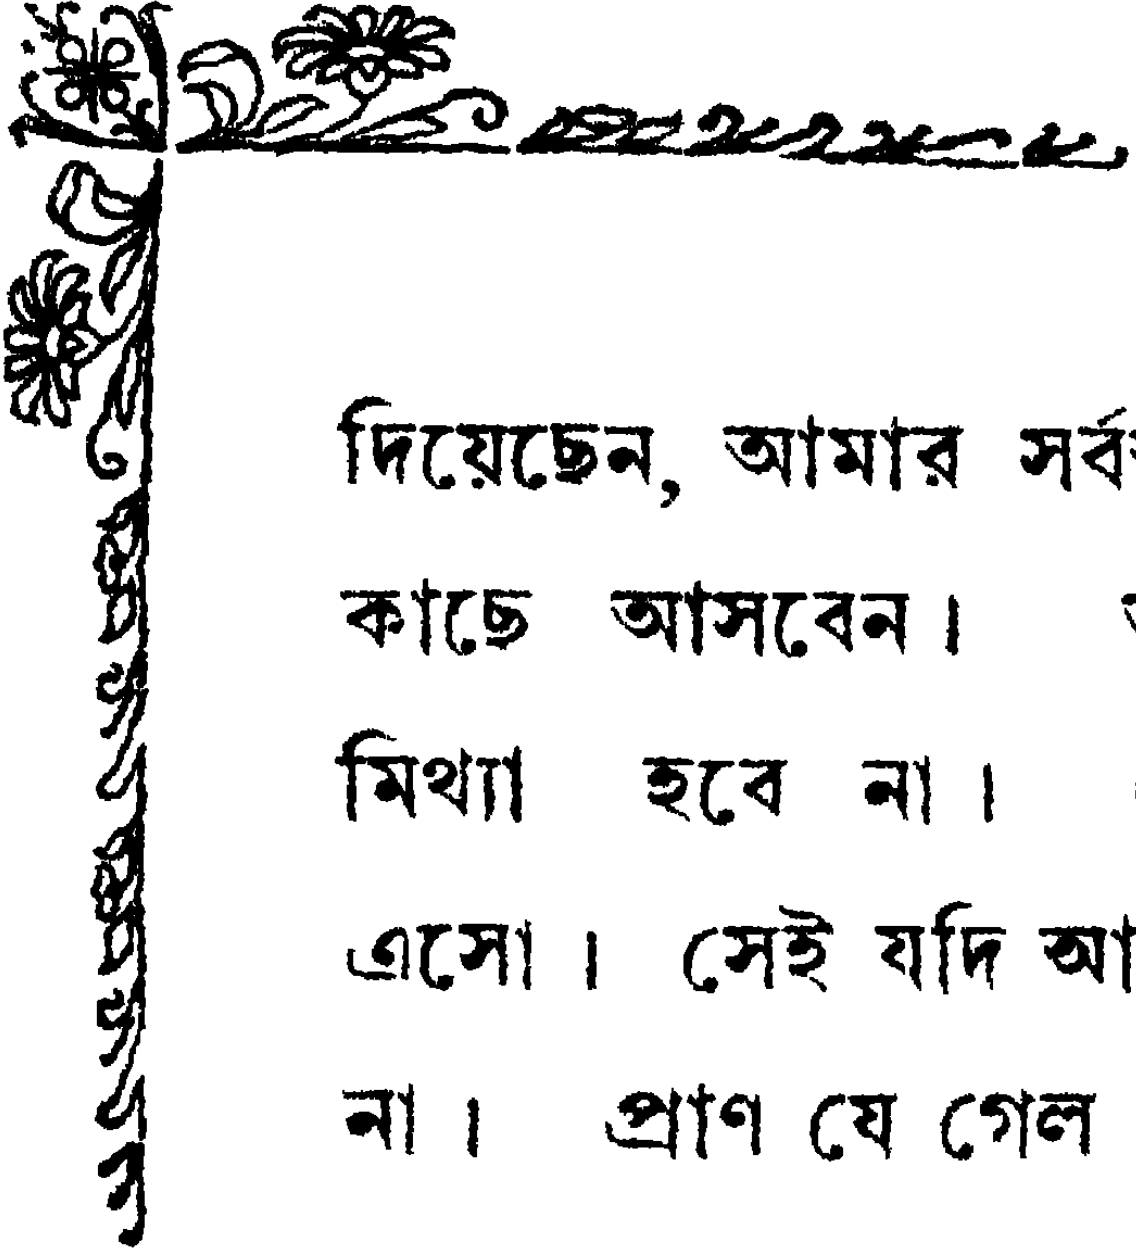 দিয়েছেন, আমার
কাছে আসবেন ।
মিথ্যা হবে না ।
এসো । সেই যদি
না । প্রাণ যে গেল